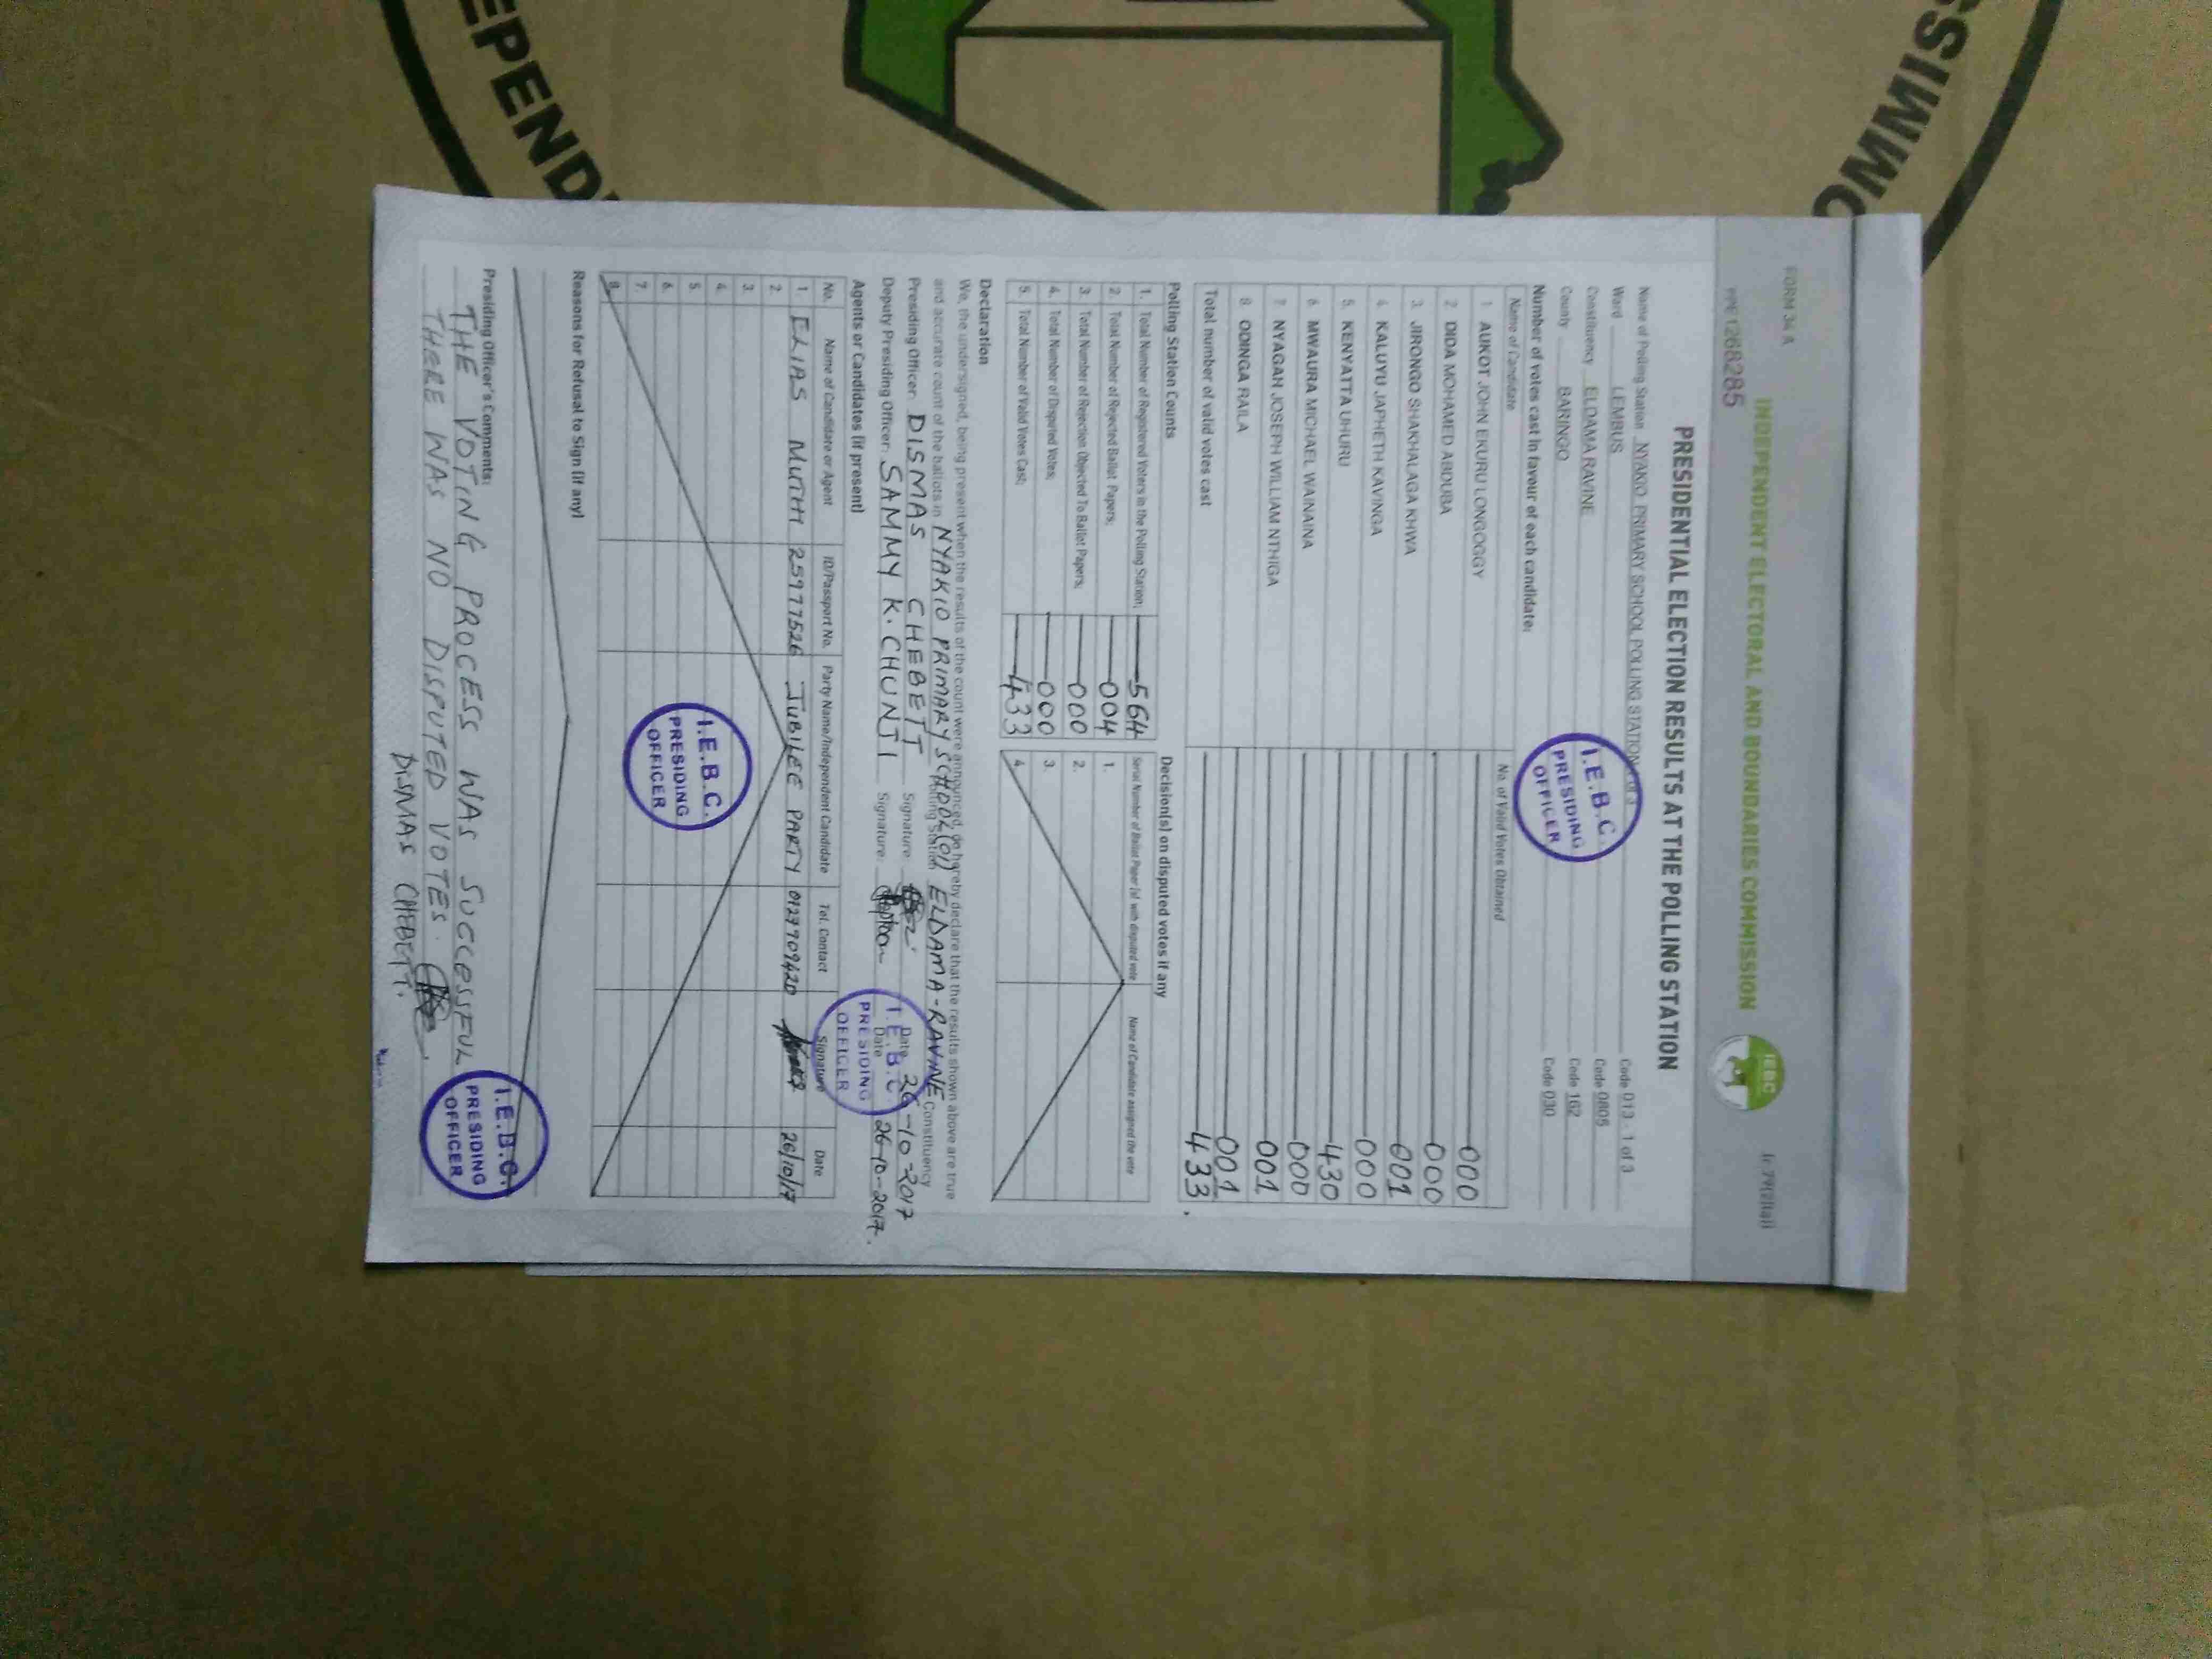 EPENDE
OMMISS
FORM 34 A
INDEPENDENT ELECTORAL AND BOUNDARIES COMMISSION
IEBC
PRESIDENTIAL ELECTION RESULTS AT THE POLLING STATION
Name of Polling Station NYAKIO PRIMARY SCHOOL POLLING STATION 1 of 3 Code 013 - 1 of 3
Ward LEMBUS Code 0805
Constituency ELDAMA RAVINE Code 162
County BARINGO Code 030
I.E.B.C.
PRESIDING
OFFICER
Number of votes cast in favour of each candidate:
Name of Candidate No. of Valid Votes Obtained
1 AUKOT JOHN EKURU LONGOGGY 000
2 DIDA MOHAMED ABDUBA 000
3. JIRONGO SHAKHALAGA KHWA 001
4. KALUYU JAPHETH KAVINGA 000
5. KENYATTA UHURU 430
6 MWAURA MICHAEL WAINAINA 000
7 NYAGAH JOSEPH WILLIAM NTHIGA 001
8 ODINGA RAILA 001
Total number of valid votes cast 433.
Polling Station Counts
1. Total Number of Registered Voters in the Polling Station; 564
2. Total Number of Rejected Ballot Papers; 004
3. Total Number of Rejection Objected To Ballot Papers; 000
4. Total Number of Disputed Votes; 000
5. Total Number of Valid Votes Cast; 433
Decision(s) on disputed votes if any
Serial Number of Ballot Paper (s) with disputed vote Name of Candidate assigned the vote
1.
2.
3.
4.
Declaration
We, the undersigned, being present when the results of the count were announced, do hereby declare that the results shown above are true
and accurate count of the ballots in NYAKIO PRIMARY SCHOOL (01) Polling Station ELDAMA-RAVINE Constituency
Presiding Officer: DISMAS CHEBETT Signature Date 26-10-2017
Deputy Presiding Officer: SAMMY K. CHUNJI Signature. Date 26-10-2017.
I.E.B.C.
PRESIDING
OFFICER
Agents or Candidates (if present)
No. Name of Candidate or Agent ID/Passport No. Party Name/Independent Candidate Tel. Contact Signature Date
1. ELIAS MUTHI 25977526 JUBILEE PARTY 0127709420 26/10/17
2.
3.
4.
5.
6.
7.
8.
I.E.B.C.
PRESIDING
OFFICER
Reasons for Refusal to Sign (if any)
Presiding Officer's Comments:
THE VOTING PROCESS WAS SUCCESSFUL
THERE WAS NO DISPUTED VOTES.
DISMAS CHEBETT.
I.E.B.C.
PRESIDING
OFFICER